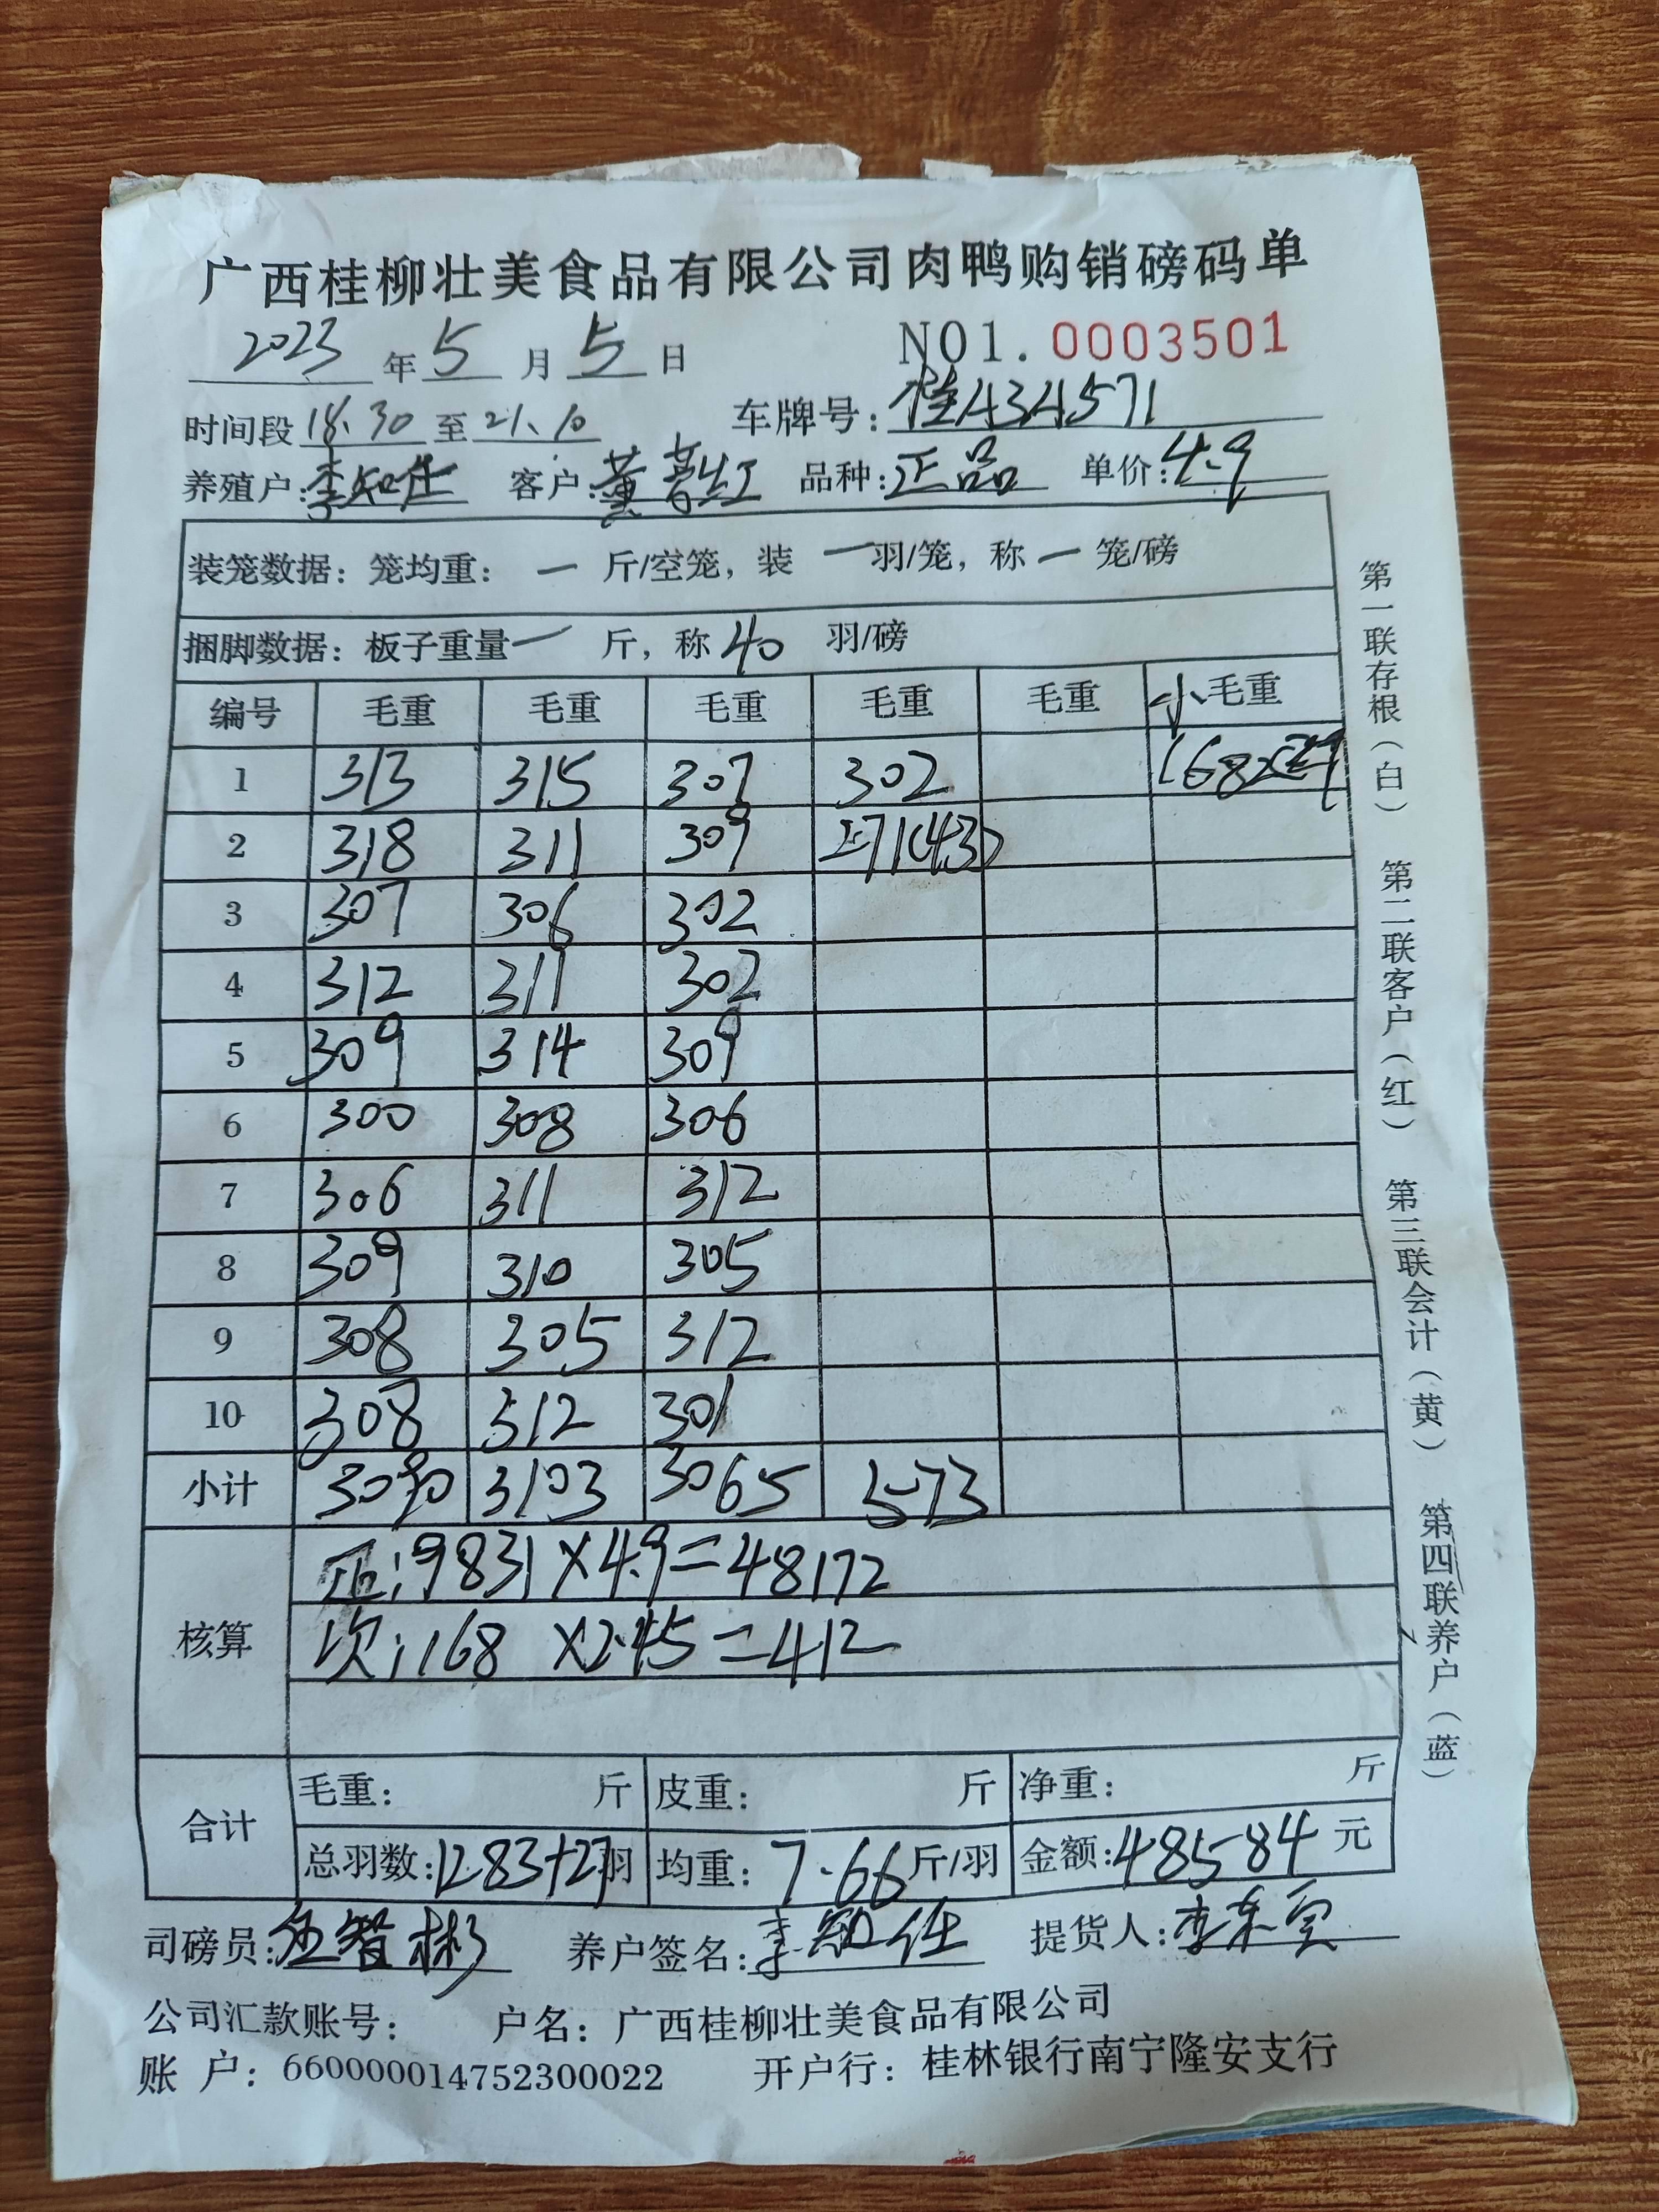 广西桂柳壮美食品有限公司肉鸭购销磅码单
2023年5月5日 NO1.0003501
时间段18.30至21.10 车牌号:桂A34571
养殖户:李知仕 客户: 品种:正品 单价:4.9
装笼数据：笼均重：一斤/空笼，装一羽/笼，称一笼/磅
捆脚数据：板子重量一斤，称40羽/磅
编号 毛重 毛重 毛重 毛重 毛重 小毛重
1 313 315 307 302 168
2 318 311 309 271(43)
3 307 306 302
4 312 311 302
5 309 314 309
6 300 308 306
7 306 311 312
8 309 310 305
9 308 305 312
10 308 312 301
小计 3090 3103 3065 573
核算
正:9831×4.9=48172
次:168×2.45=412
合计
毛重：斤 皮重：斤 净重：斤
总羽数:1283+27羽 均重:7.66斤/羽 金额:48584元
司磅员:伍智彬 养户签名:李知仕 提货人:
公司汇款账号： 户名：广西桂柳壮美食品有限公司
账户：660000014752300022 开户行：桂林银行南宁隆安支行
第一联存根（白） 第二联客户（红） 第三联会计（黄） 第四联养户（蓝）